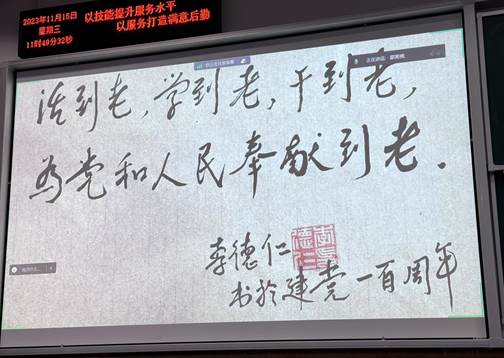 2023年11月15日
星期三
11时49分32秒
以技能提升服务水平
以服务打造满意后勤
活到老,学到老,干到老,
为党和人民奉献到老.
李德仁
书於建党一百周年